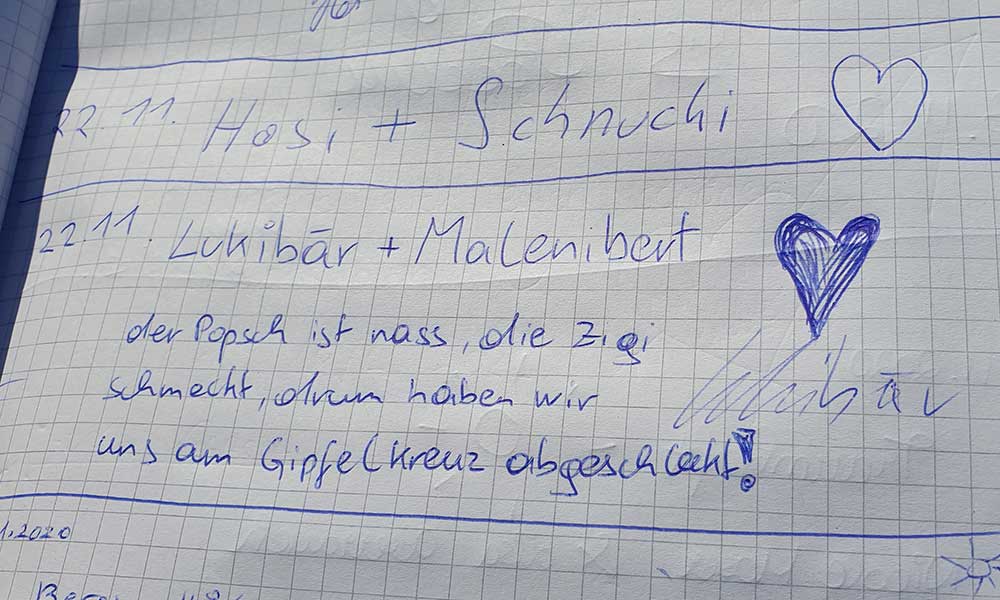 22.11. Hasi + Schnuchi
22.11. Lukibär + Malenibert
der Popsch ist nass, die Zigi
schmeckt, drum haben wir
uns am Gipfelkreuz abgeschleckt!
.2020